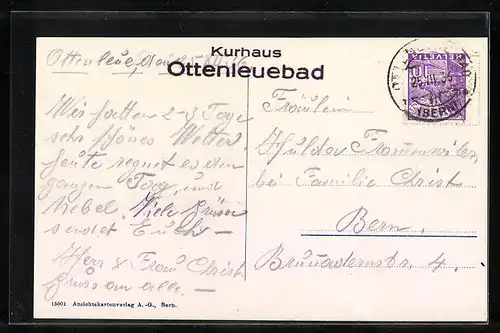 Kurhaus
Ottenleuebad
Ottenleue, den
Wir hatten 2-3 Tage
sehr schönes Wetter,
heute regnet es den
ganzen Tag, und
Nebel. Viele Grüsse
sendet Euch —
Herr & Frau Christ
Gruss an alle. —
Fräulein
Hulda
bei Familie Christ
Bern.
4.
HELVETIA
10
(BERN)
15001 Ansichtskartenverlag A.-G., Bern.